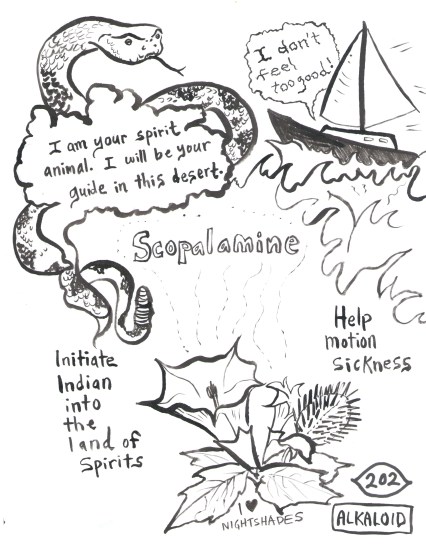 I don't
feel
too good!
I am your spirit
animal. I will be your
guide in this desert.
Scopalamine
Help
motion
sickness
Initiate
Indian
into
the
land of
Spirits
I ♥
NIGHTSHADES
202
ALKALOID